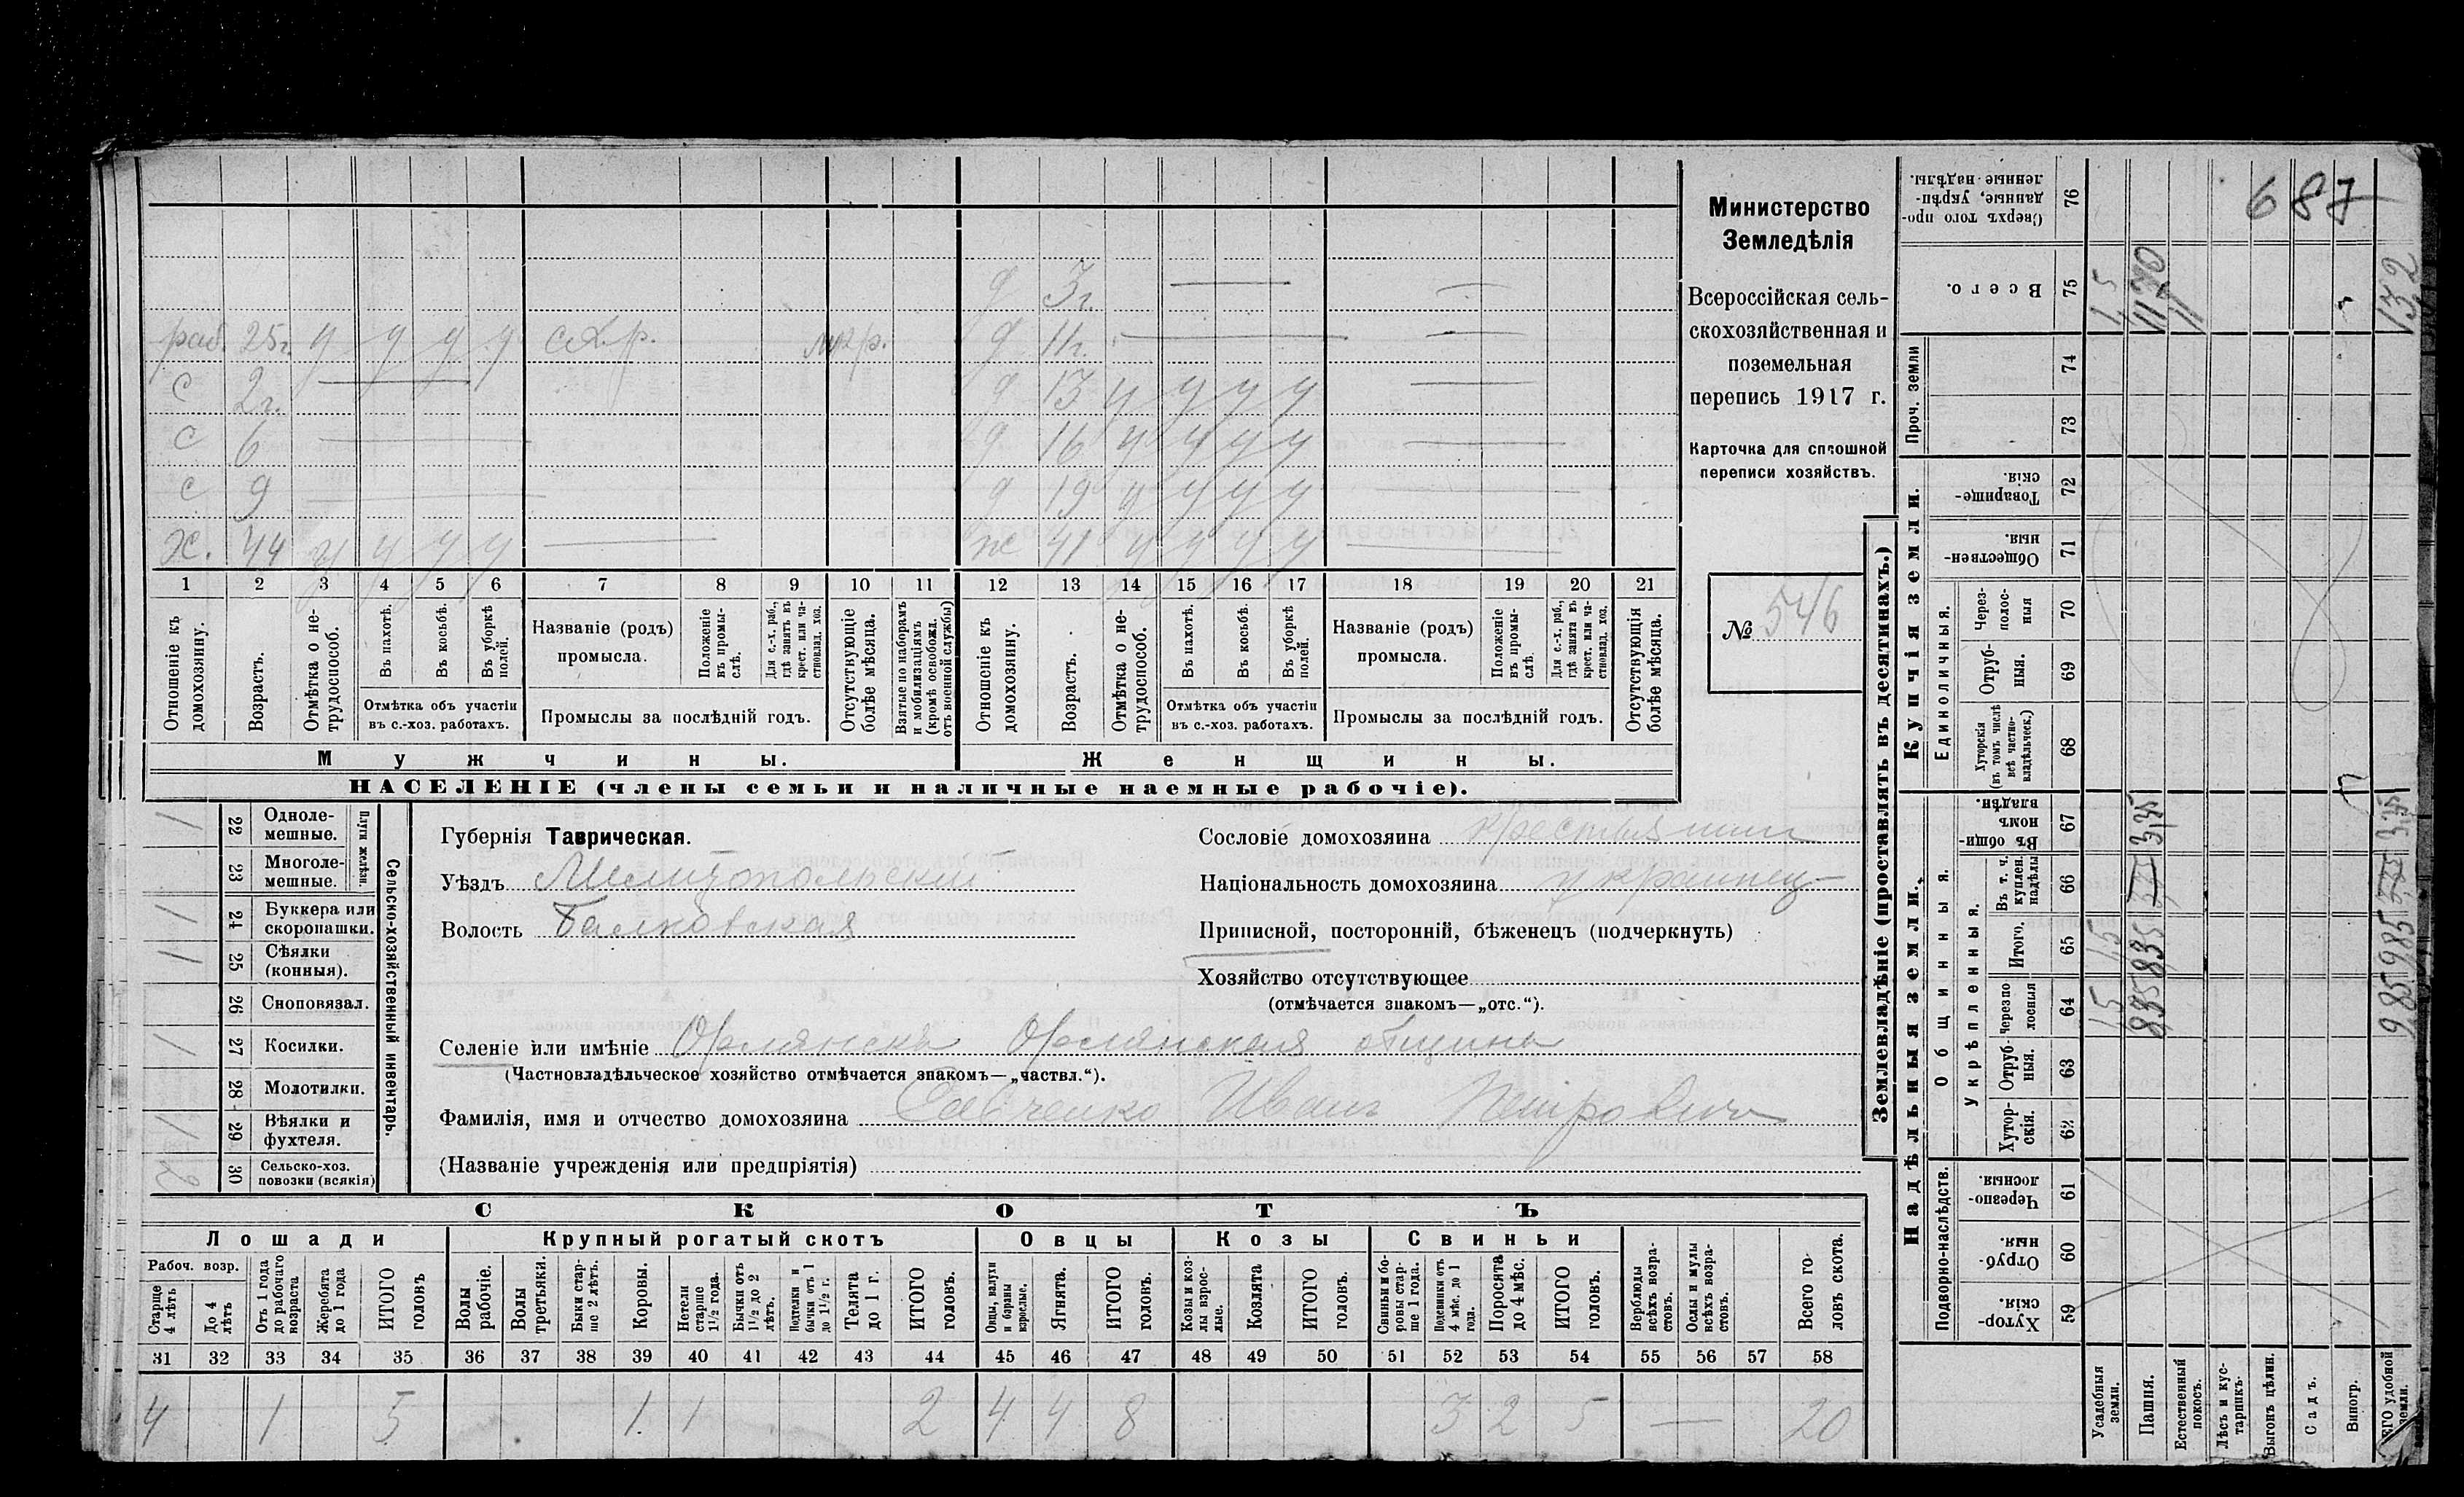 687
Министерство
Земледѣлія
Всероссійская сель-
скохозяйственная и
поземельная
перепись 1917 г.
Карточка для сплошной
переписи хозяйствъ.
№ 546
д 3г.
раб. 25г. у у у у с.х.р. д 11г.
с 2г. д 13 у у у у
с 6 д 16 у у у у
с 9 д 19 у у у у
х. 44 у у у у ж 41 у у у у
1 2 3 4 5 6 7 8 9 10 11 12 13 14 15 16 17 18 19 20 21
Отношеніе къ домохозяину.
Возрастъ.
Отмѣтка о не-трудоспособ.
Въ пахотѣ.
Въ косьбѣ.
Въ уборкѣ полей.
Отмѣтка объ участіи въ с.-хоз. работахъ.
Названіе (родъ) промысла.
Положеніе въ промы-слѣ.
Для с.-х. раб., гдѣ занятъ въ крест. или ча-стновлад. хоз.
Промыслы за послѣдній годъ.
Отсутствующіе болѣе мѣсяца.
Взятые по наборамъ и мобилизаціямъ (кромѣ освобожд. отъ военной службы)
Отношеніе къ домохозяину.
Возрастъ.
Отмѣтка о не-трудоспособ.
Въ пахотѣ.
Въ косьбѣ.
Въ уборкѣ полей.
Отмѣтка объ участіи въ с.-хоз. работахъ.
Названіе (родъ) промысла.
Положеніе въ промы-слѣ.
Для с.-х. раб., гдѣ занята въ крест. или ча-стновлад. хоз.
Промыслы за послѣдній годъ.
Отсутствующія болѣе мѣсяца.
Мужчины. Женщины.
НАСЕЛЕНІЕ (члены семьи и наличные наемные рабочіе).
Сельско-хозяйственный инвентарь.
Плуги желѣзн.
1 22 Одноле-мешные.
23 Многоле-мешные.
1 24 Буккера или скоропашки.
1 25 Сѣялки (конныя).
26 Сноповязал.
1 27 Косилки.
28 Молотилки.
1 29 Вѣялки и фухтеля.
2 30 Сельско-хоз. повозки (всякія)
Губернія Таврическая.
Уѣздъ Мелитопольскій
Волость Балковская
Сословіе домохозяина крестьянин
Національность домохозяина украинец
Приписной, посторонній, бѣженецъ (подчеркнуть)
Хозяйство отсутствующее
(отмѣчается знакомъ—„отс.“).
Селеніе или имѣніе Орлянскъ Орлянская община
(Частновладѣльческое хозяйство отмѣчается знакомъ—„частвл.“).
Фамилія, имя и отчество домохозяина Савченко Иванъ Петрович
(Названіе учрежденія или предпріятія)
СКОТЪ
Лошади Крупный рогатый скотъ Овцы Козы Свиньи
Рабоч. возр.
Старше 4 лѣтъ
До 4 лѣтъ
Отъ 1 года до рабочаго возраста
Жеребята до 1 года
ИТОГО головъ
Волы рабочіе.
Волы третьяки.
Быки стар-ше 2 лѣтъ.
Коровы.
Нетели старше 1½ года.
Бычки отъ 1½ до 2 лѣтъ.
Подтелки и бычки отъ 1 до 1½ г.
Телята до 1 г.
ИТОГО головъ.
Овцы, валухи и бараны взрослые.
Ягнята.
ИТОГО головъ.
Козы и коз-лы взрос-лые.
Козлята
ИТОГО головъ.
Свиньи и бо-ровы стар-ше 1 года.
Подсвинки отъ 4 мѣс. до 1 года.
Поросята до 4 мѣс.
ИТОГО головъ.
Верблюды всѣхъ возра-стовъ.
Ослы и мулы всѣхъ возра-стовъ.
Всего го-ловъ скота.
31 32 33 34 35 36 37 38 39 40 41 42 43 44 45 46 47 48 49 50 51 52 53 54 55 56 57 58
4 1 5 1 1 2 4 4 8 3 2 5 — 20
Землевладѣніе (проставлять въ десятинахъ.)
Надѣльныя земли. Купчія земли. Проч. земли
Подворно-наслѣдств.
Общинныя.
Укрѣпленныя.
Единоличныя.
59 Хутор-скія.
60 Отруб-ныя.
61 Черезпо-лосныя.
62 Хутор-скія.
63 Отруб-ныя.
64 Черезпо-лосныя
65 Итого.
66 Въ т. ч. куплен. надѣлы
67 Въ общин-номъ владѣн.
68 Хуторскія (въ томъ числѣ всѣ частно-владѣльческ.)
69 Отруб-ныя.
70 Через-полос-ныя
71 Обществен-ныя.
72 Товарище-скія.
73
74
75 Всего.
76 Сверхъ того про-данные, укрѣп-ленные надѣлы.
Усадебныя земли.
Пашня.
Естественный покосъ.
Лѣсъ и кус-тарникъ.
Выгонъ цѣлин.
Садъ.
Виногр.
ИТОГО удобной земли.
15 15
835 835 335
985 985 335
1170
132